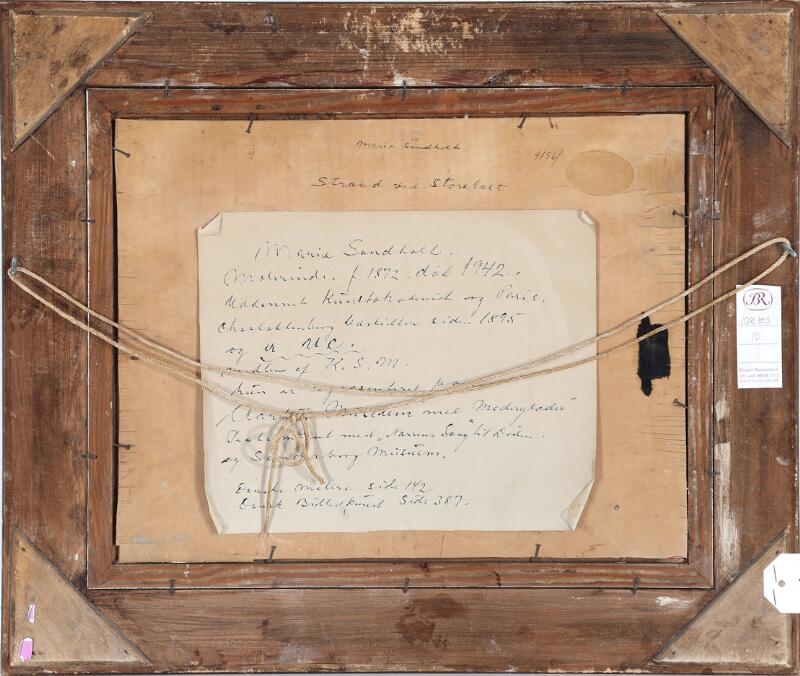 Maria Sandholt
4156/
Strand ved Storebælt
Maria Sandholt.
Malerinde. f 1872. død 1942.
Uddannet Kunstakademiet og Paris.
Charlottenborg Udstiller siden 1895
og
medlem af K.S.M.
hun er repræsenteret paa
med Moderglæder"
med „Narrens Sang til Døden.
og Sønderborg Museum.
Danske Malere side 142
Dansk Billedkunst Side 387.
BR